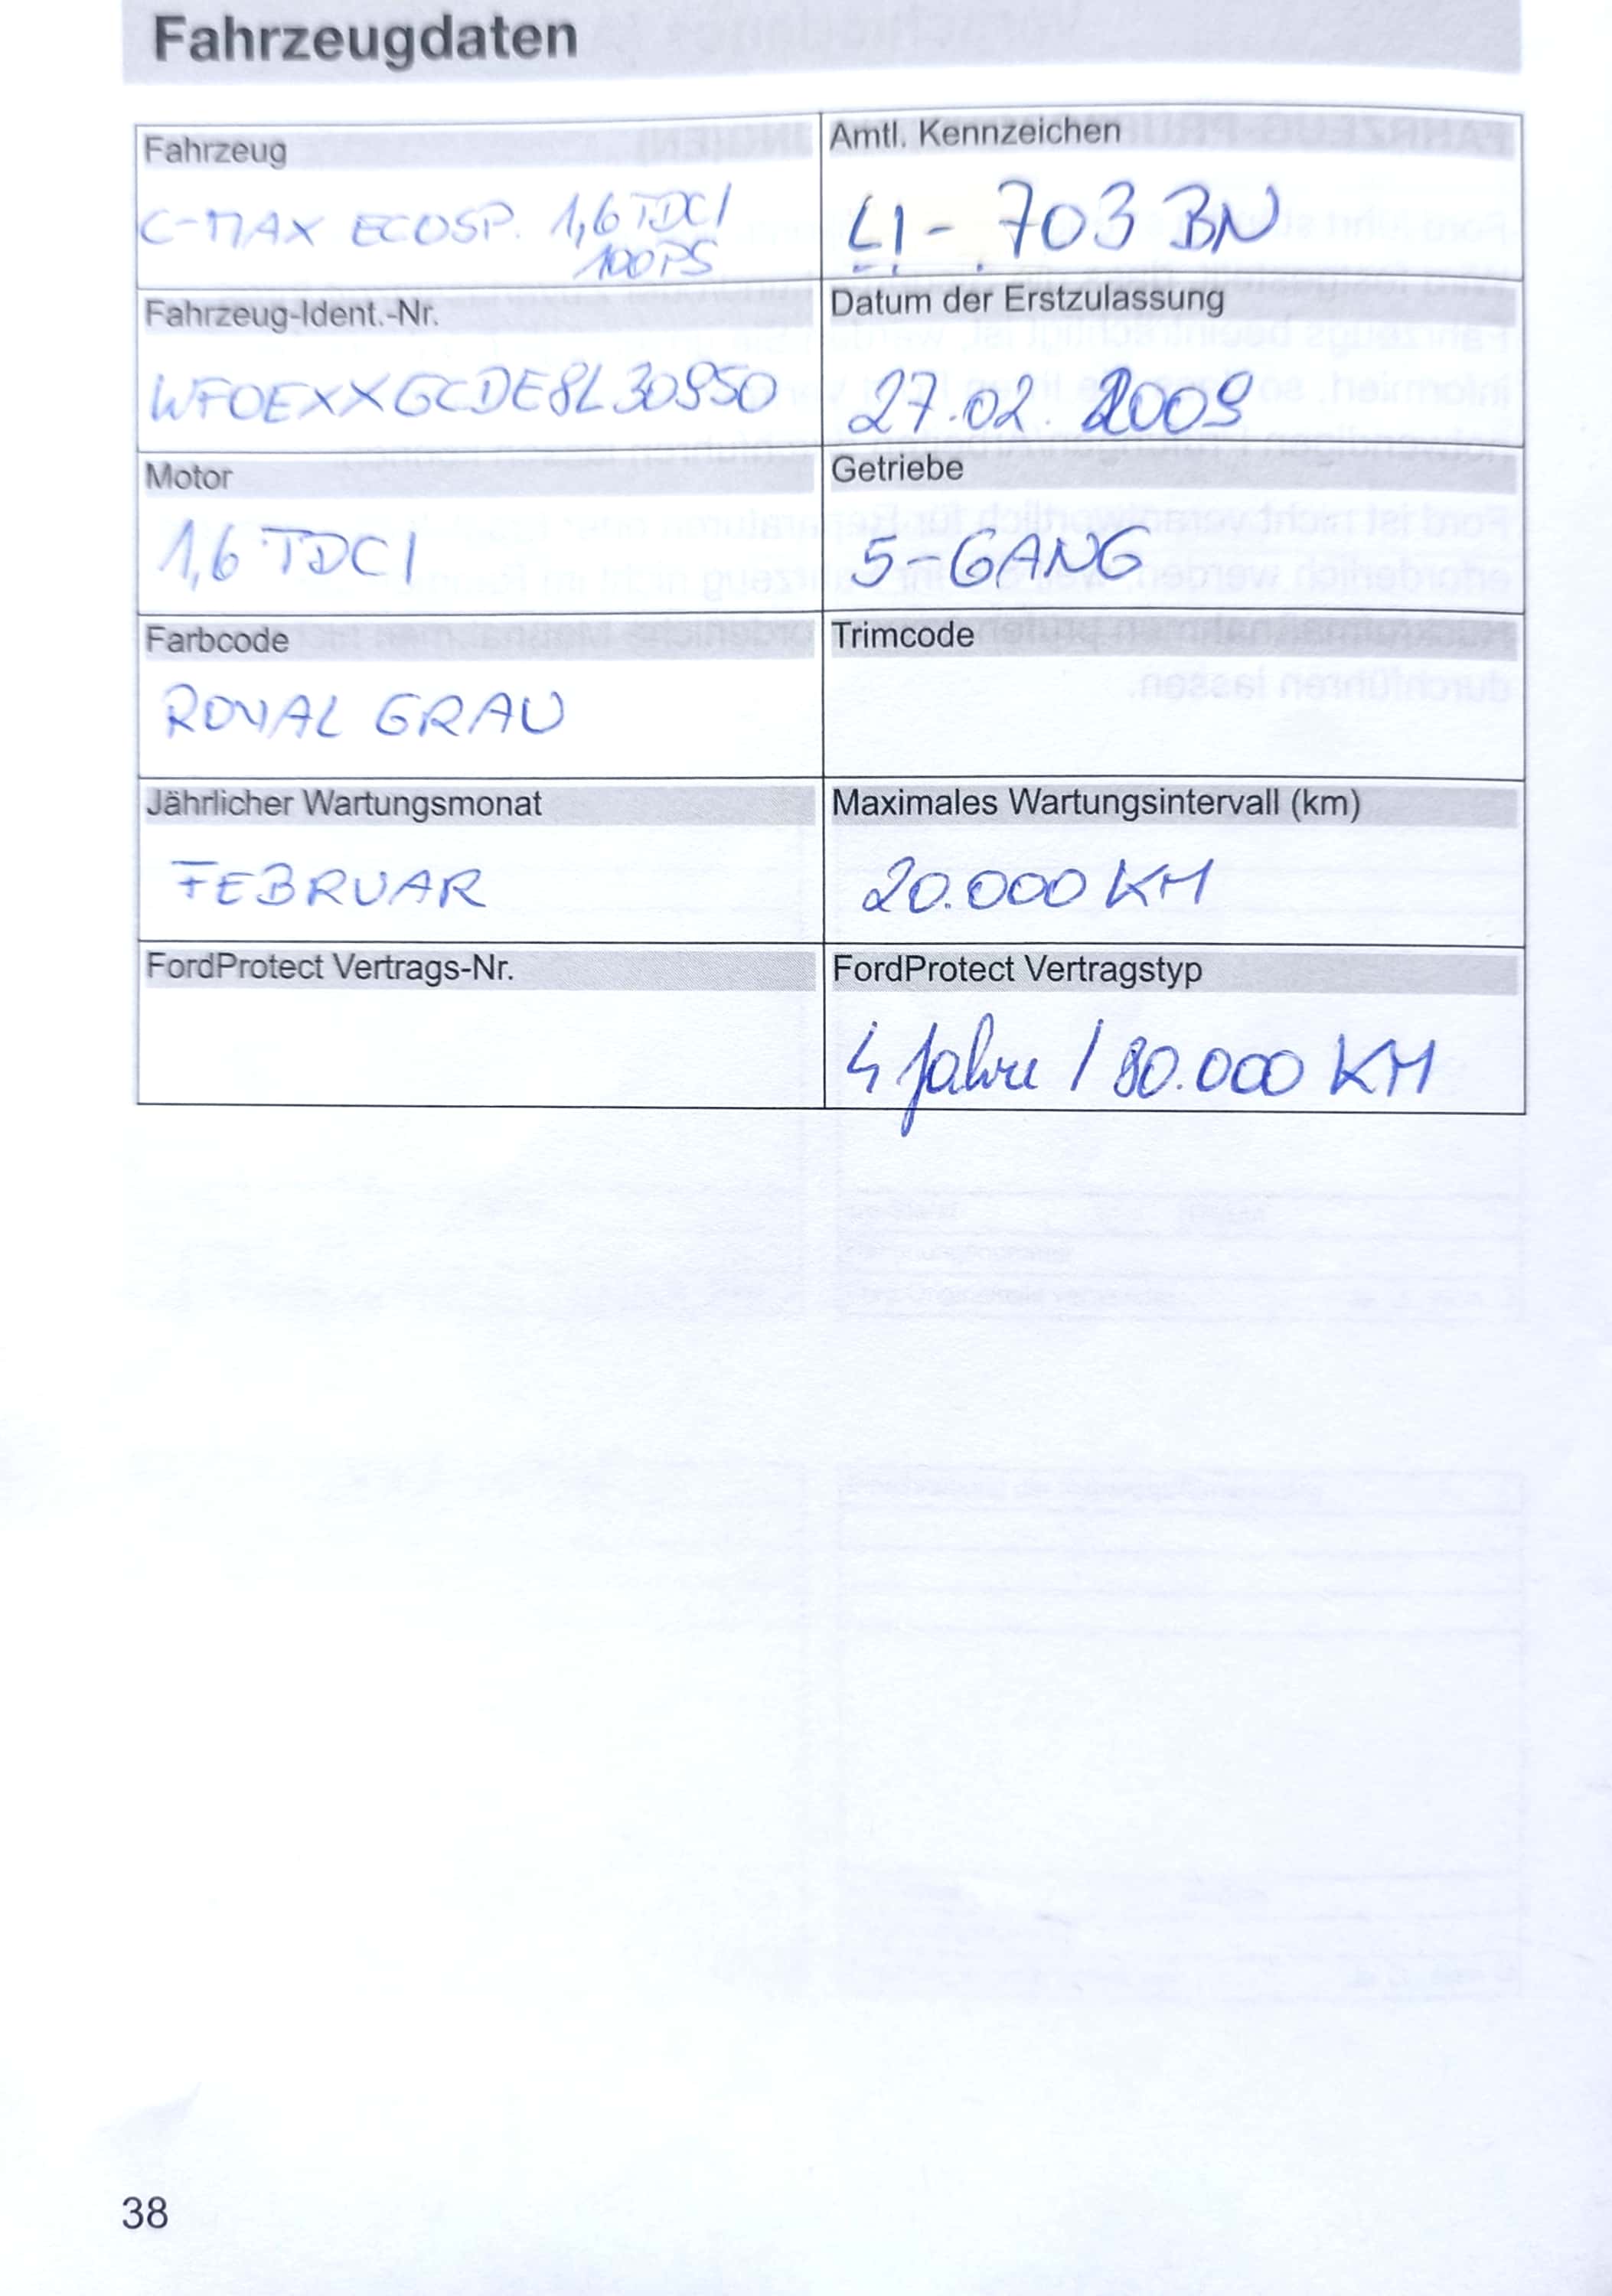 Fahrzeugdaten
Fahrzeug
C-MAX ECOSP. 1,6 TDCI
100PS
Amtl. Kennzeichen
LI - 703 BN
Fahrzeug-Ident.-Nr.
WF0EXXGCDE8L30950
Datum der Erstzulassung
27.02.2009
Motor
1,6 TDCI
Getriebe
5-GANG
Farbcode
ROYAL GRAU
Trimcode
Jährlicher Wartungsmonat
FEBRUAR
Maximales Wartungsintervall (km)
20.000 KM
FordProtect Vertrags-Nr.
FordProtect Vertragstyp
4 Jahre / 80.000 KM
38